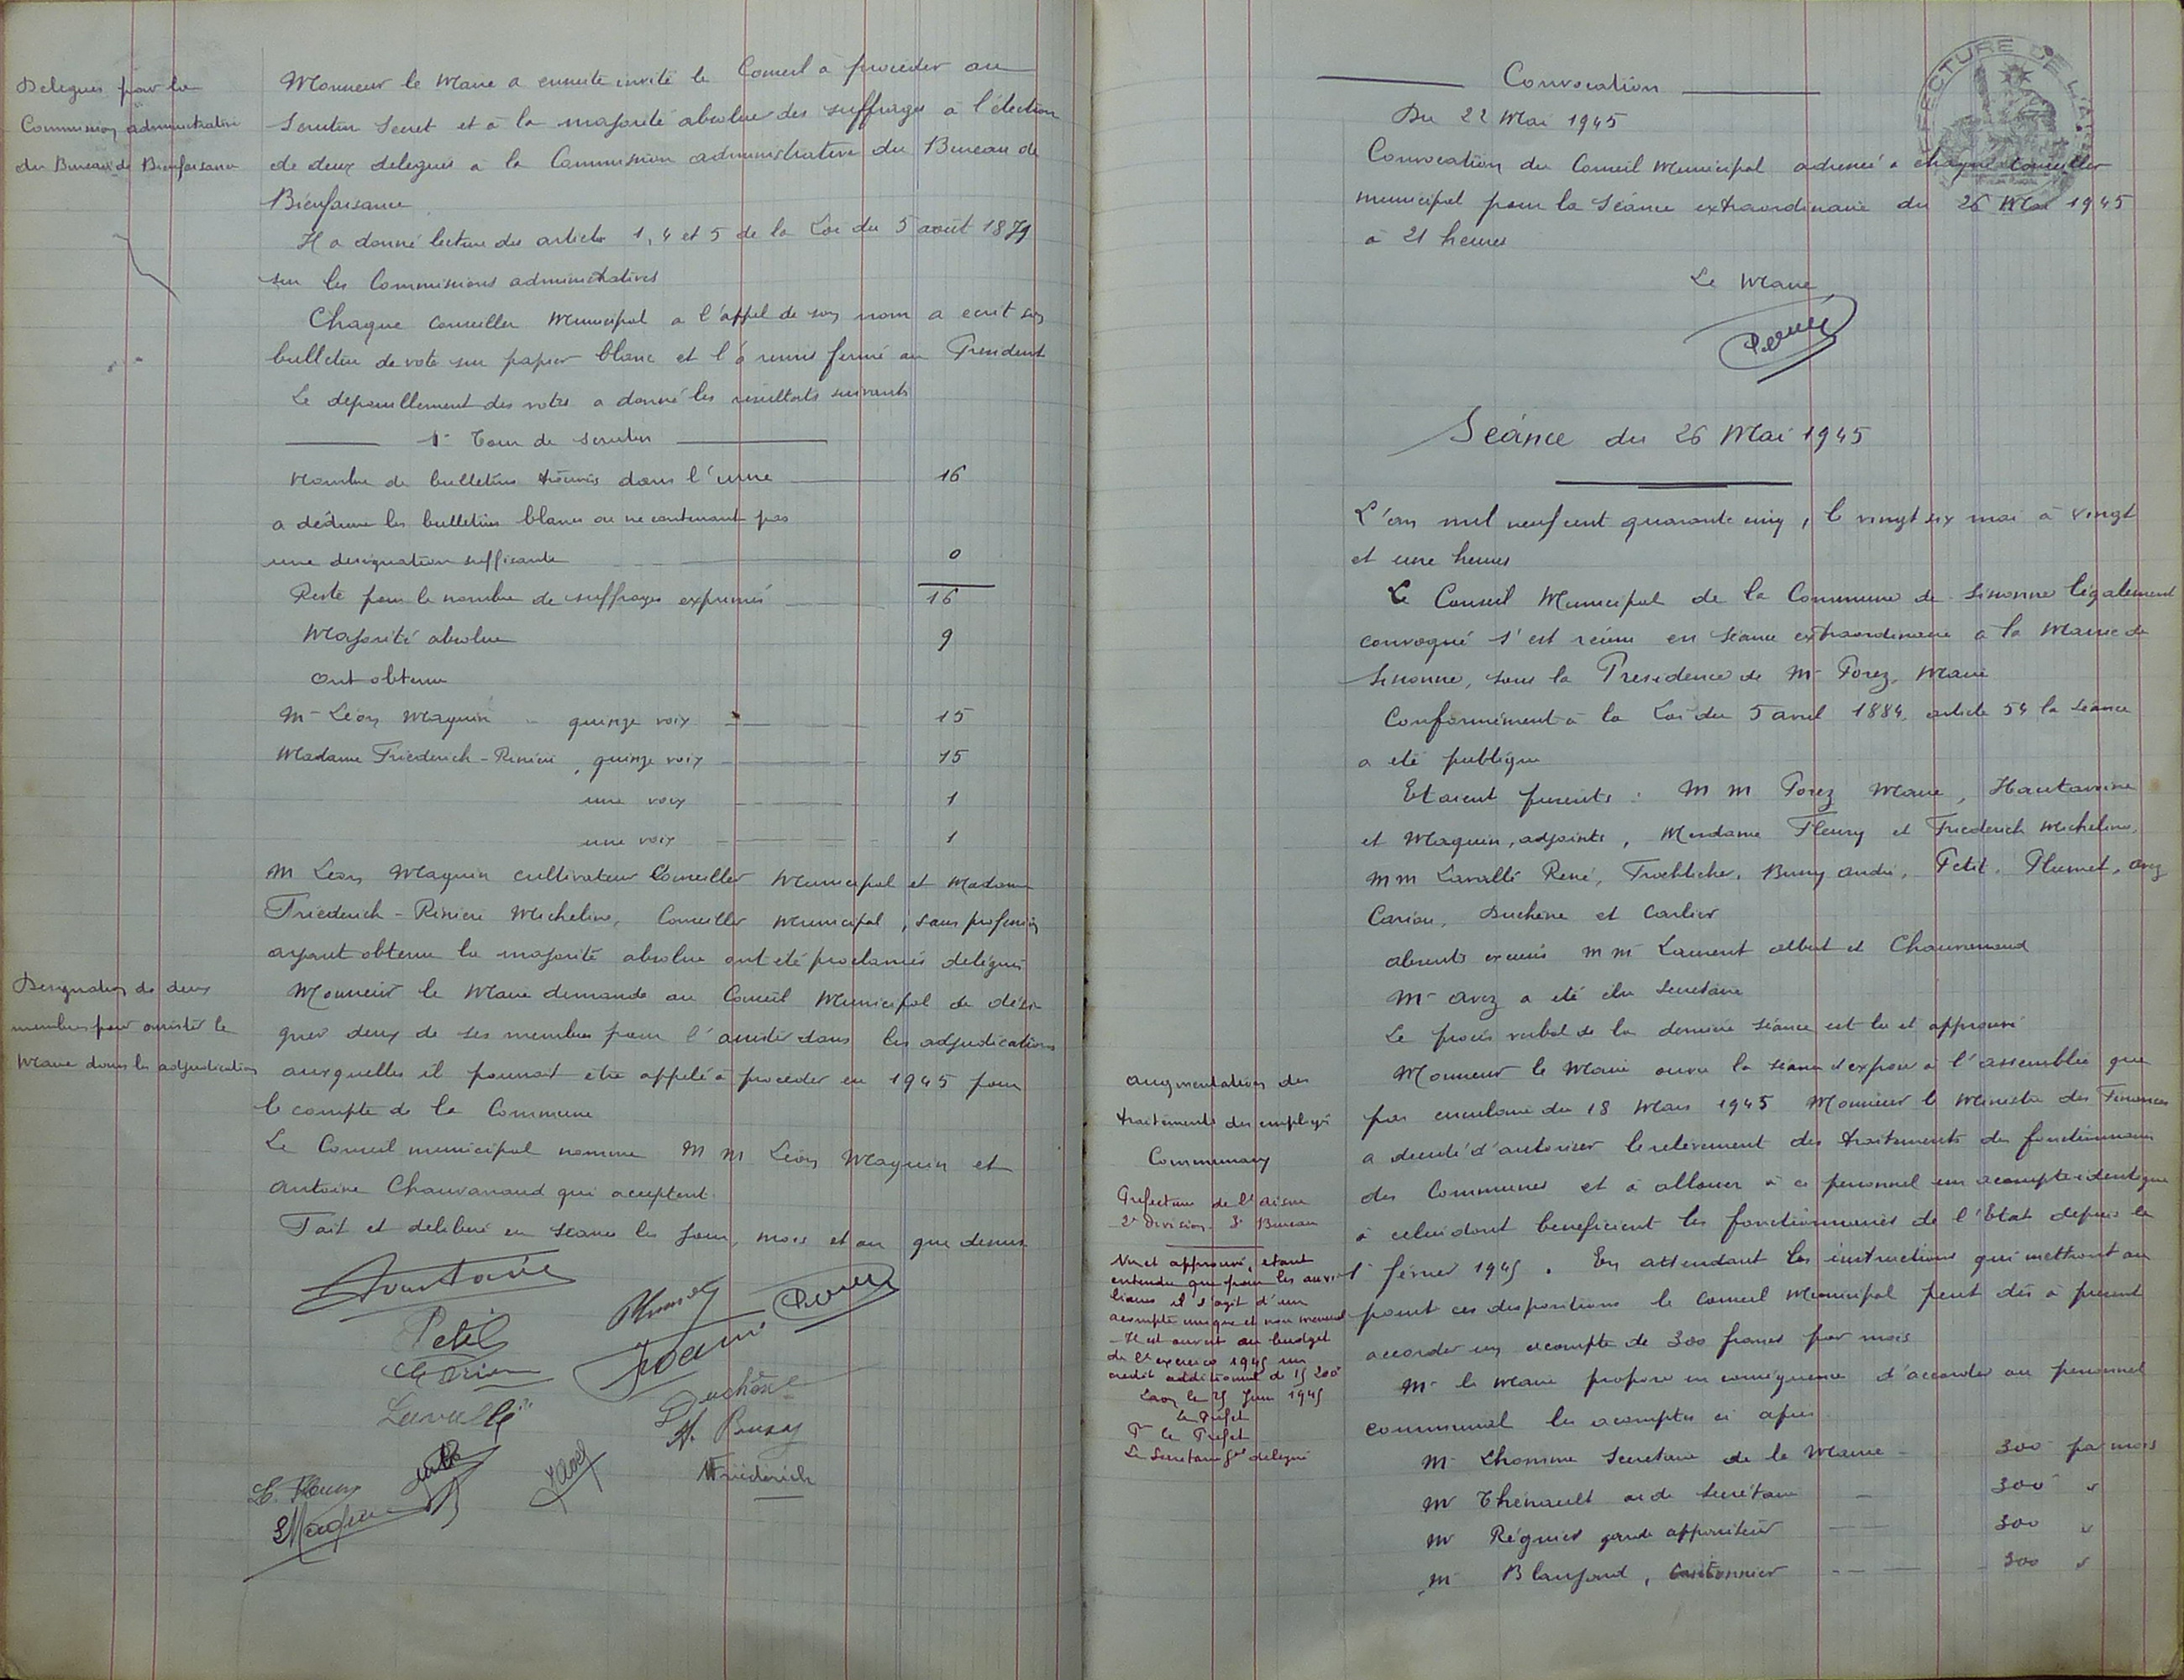 Délegués pour la
Commission administrative
du Bureau de Bienfaisance
Monsieur le Maire a ensuite invité le Conseil à procéder au
scrutin secret et à la majorité absolue des suffrages à l'élection
de deux delegués à la Commission administrative du Bureau de
Bienfaisance
Il a donné lecture des articles 1, 4 et 5 de la Loi du 5 août 1879
sur les Commissions administratives
Chaque conseiller Municipal a l'appel de son nom a ecrit son
bulletin de vote sur papier blanc et l'a remis fermé au President
Le depouillement des votes a donné les résultats suivants
1er Tour de scrutin
Nombre de bulletins trouvés dans l'urne 16
a déduire les bulletins blancs ou ne contenant pas
une designation suffisante 0
Reste pour le nombre de suffrages exprimés 16
Majorité absolue 9
ont obtenu
Mr Léon Maquin quinze voix 15
Madame Friederich - Rinieri, quinze voix 15
une voix 1
une voix 1
M Léon Maquin cultivateur Conseiller Municipal et Madame
Friederich - Rinieri Micheline, Conseiller Municipal, sans profession
ayant obtenu la majorité absolue ont été proclamés delégués
Designation de deux
membres pour assister le
Maire dans les adjudications
Monsieur le Maire demande au Conseil Municipal de dési
gner deux de ses membres pour l'assister dans les adjudications
auxquelles il pourrait etre appelé à proceder en 1945 pour
le compte de la Commune
Le Conseil municipal nomme M M Léon Maquin et
Antoine Chauvanaud qui acceptent.
Fait et deliberé en seance les jour, mois et an que dessus
Petit
Lavallé
Duchêne
A. Bussy
MFriederich
L. Fleury
LMaquin
Convocation
Du 22 Mai 1945
Convocation du Conseil Municipal adressée à chaque conseiller
municipal pour la Séance extraordinaire du 26 Mai 1945
à 21 heures
Le Maire
Séance du 26 Mai 1945
L'an mil neuf cent quarante cinq, le vingt six mai à vingt
et une heures
Le Conseil Municipal de la Commune de Sissonne légalement
convoqué s'est réuni en séance extraordinaire à la Mairie de
Sissonne, sous la Presidence de Mr Porez, Maire
Conformément à la Loi du 5 avril 1884, article 54 la séance
a été publique
Etaient presents : M M Porez Maire, Hautavoine
et Maquin, adjoints, Mesdame Fleury et Friederich Micheline,
MM Lavallé René, Froehlicher, Bussy André, Petit, Plumet, Avez
Cariou, Duchène et Carlier
absents excusés MM Laurent Albert et Chauvanaud
Mr Avez a été élu Secretaire
Le procés verbal de la dernière séance est lu et approuvé
Augmentation des
traitements des employés
Communaux
Monsieur le Maire ouvre la séance et expose à l'assemblée que
par circulaire du 18 Mars 1945 Monsieur le Ministre des Finances
a decidé d'autoriser le relevement des traitements des fonctionnaires
des Communes et à allouer à ce personnel un acompte identique
à celui dont beneficient les fonctionnaires de l'Etat depuis le
1er fevrier 1945. En attendant les instructions qui mettront au
point ces dispositions le Conseil Municipal peut dès à present
accorder un acompte de 300 francs par mois
Prefecture de l'Aisne
2e Division - 3e Bureau
Vu et approuvé, étant
entendu que pour les auxi-
liaires il s'agit d'un
acompte unique et non mensuel
Il est ouvert au budget
de l'exercice 1945 un
credit additionnel de 15 200
Laon le 25 Juin 1945
Le Préfet
Pr le Préfet
Le Secretaire Gal delegué
Mr le Maire propose en conséquence d'accorder au personnel
communal les acomptes ci après
Mr Lhomme Secretaire de la Mairie - 300 par mois
Mr Thénault aide Secrétaire - 300 "
Mr Régnier garde appariteur 300 "
Mr Blanfond, cantonnier 300 "